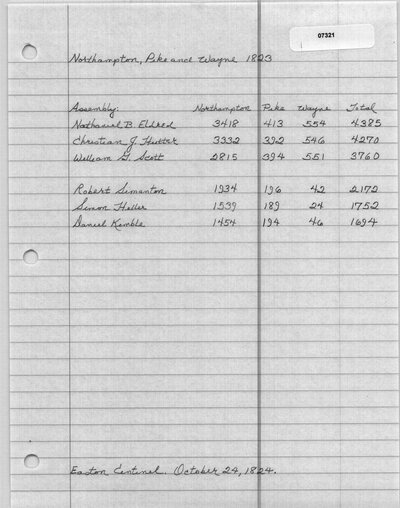 07321
Northampton, Pike and Wayne 1823
Assembly: Northampton Pike Wayne Total
Nathaniel B. Eldred 3418 413 554 4385
Christian J. Hutter 3332 392 546 4270
William G. Scott 2815 394 551 3760
Robert Simanton 1934 196 42 2172
Simon Heller 1539 189 24 1752
Daniel Kemble 1454 194 46 1694
Easton Centinel. October 24, 1824.